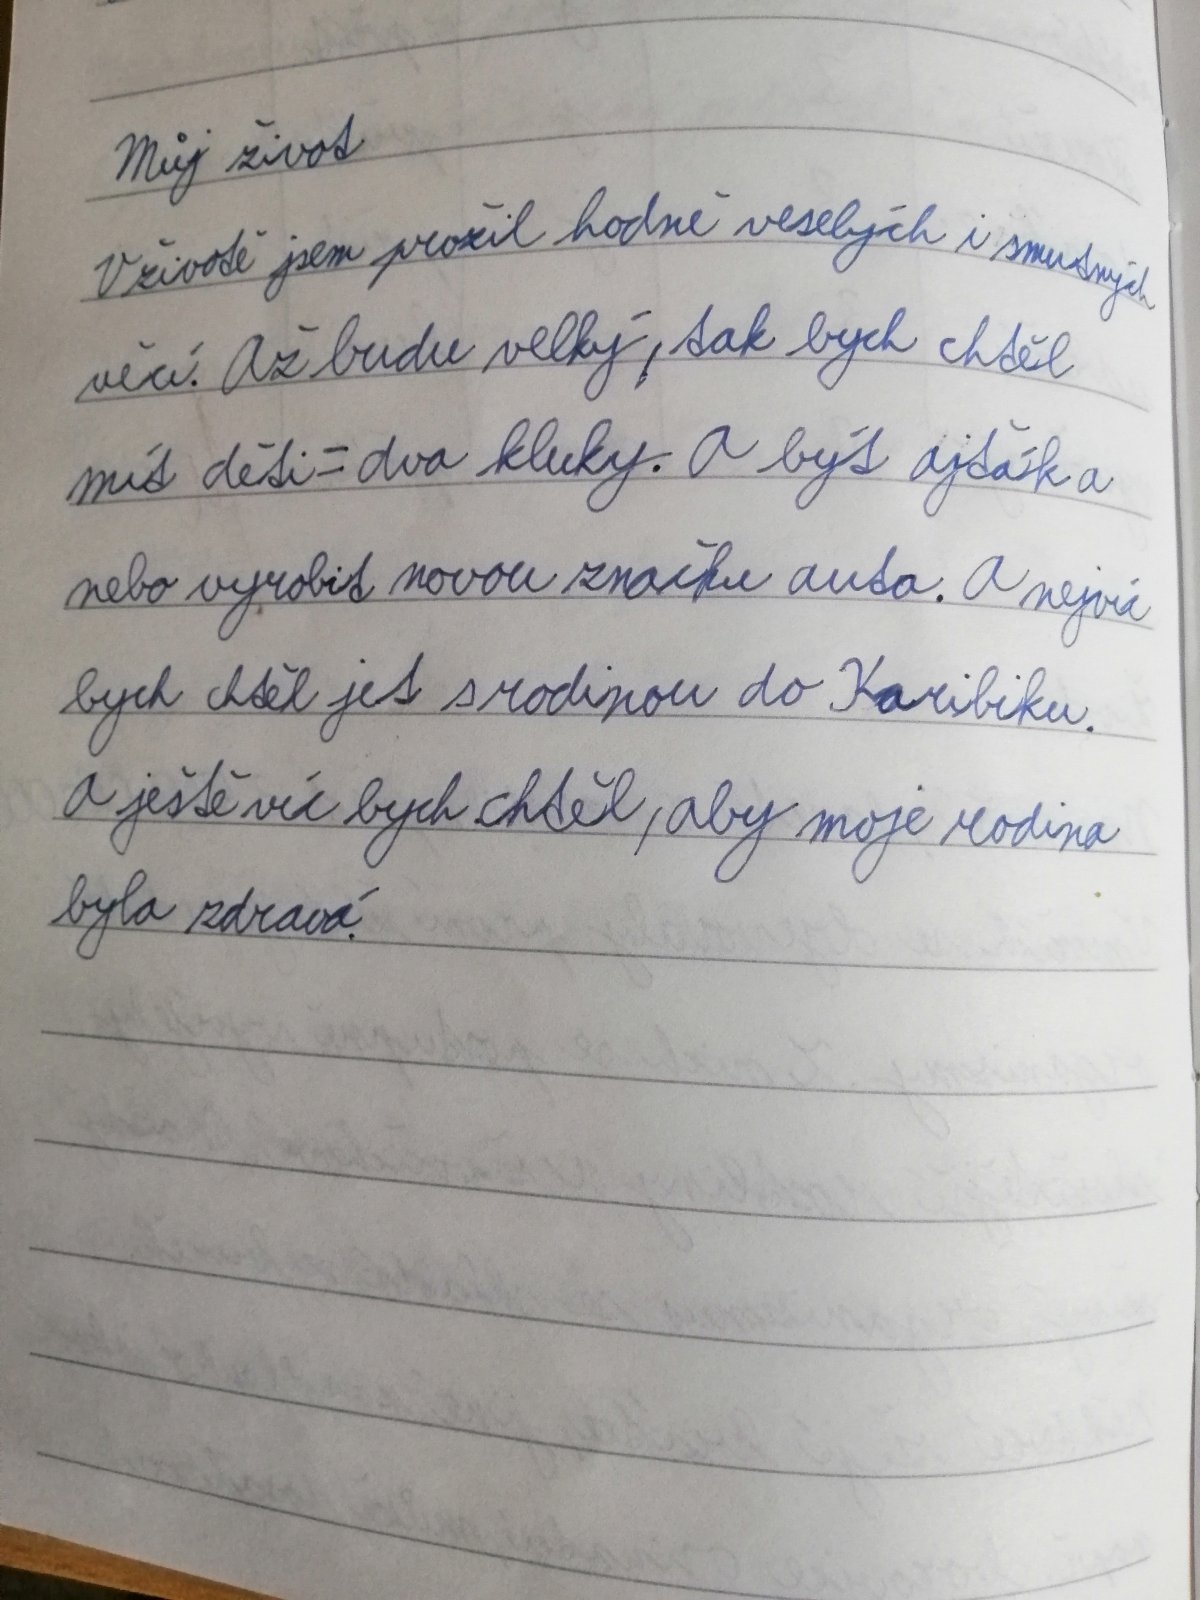 Můj život
V životě jsem prožil hodně veselých i smutných
věcí. Až budu velký, tak bych chtěl
mít děti = dva kluky. A být ajťák a
nebo vyrobit novou značku auta. A nejvíc
bych chtěl jet s rodinou do Karibiku.
A ještě víc bych chtěl, aby moje rodina
byla zdravá.